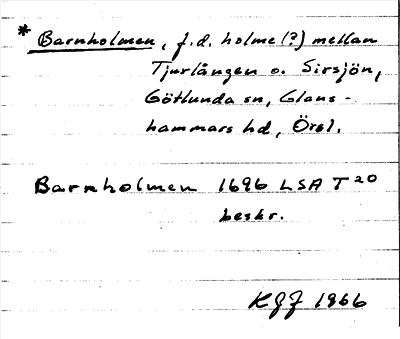 * Barnholmen, f.d. holme (?) mellan
Tjurlången o. Sirsjön,
Götlunda sn, Glans-
hammars hd, Örebl.
Barnholmen 1696 LSA T 20
beskr.
KGJ 1966